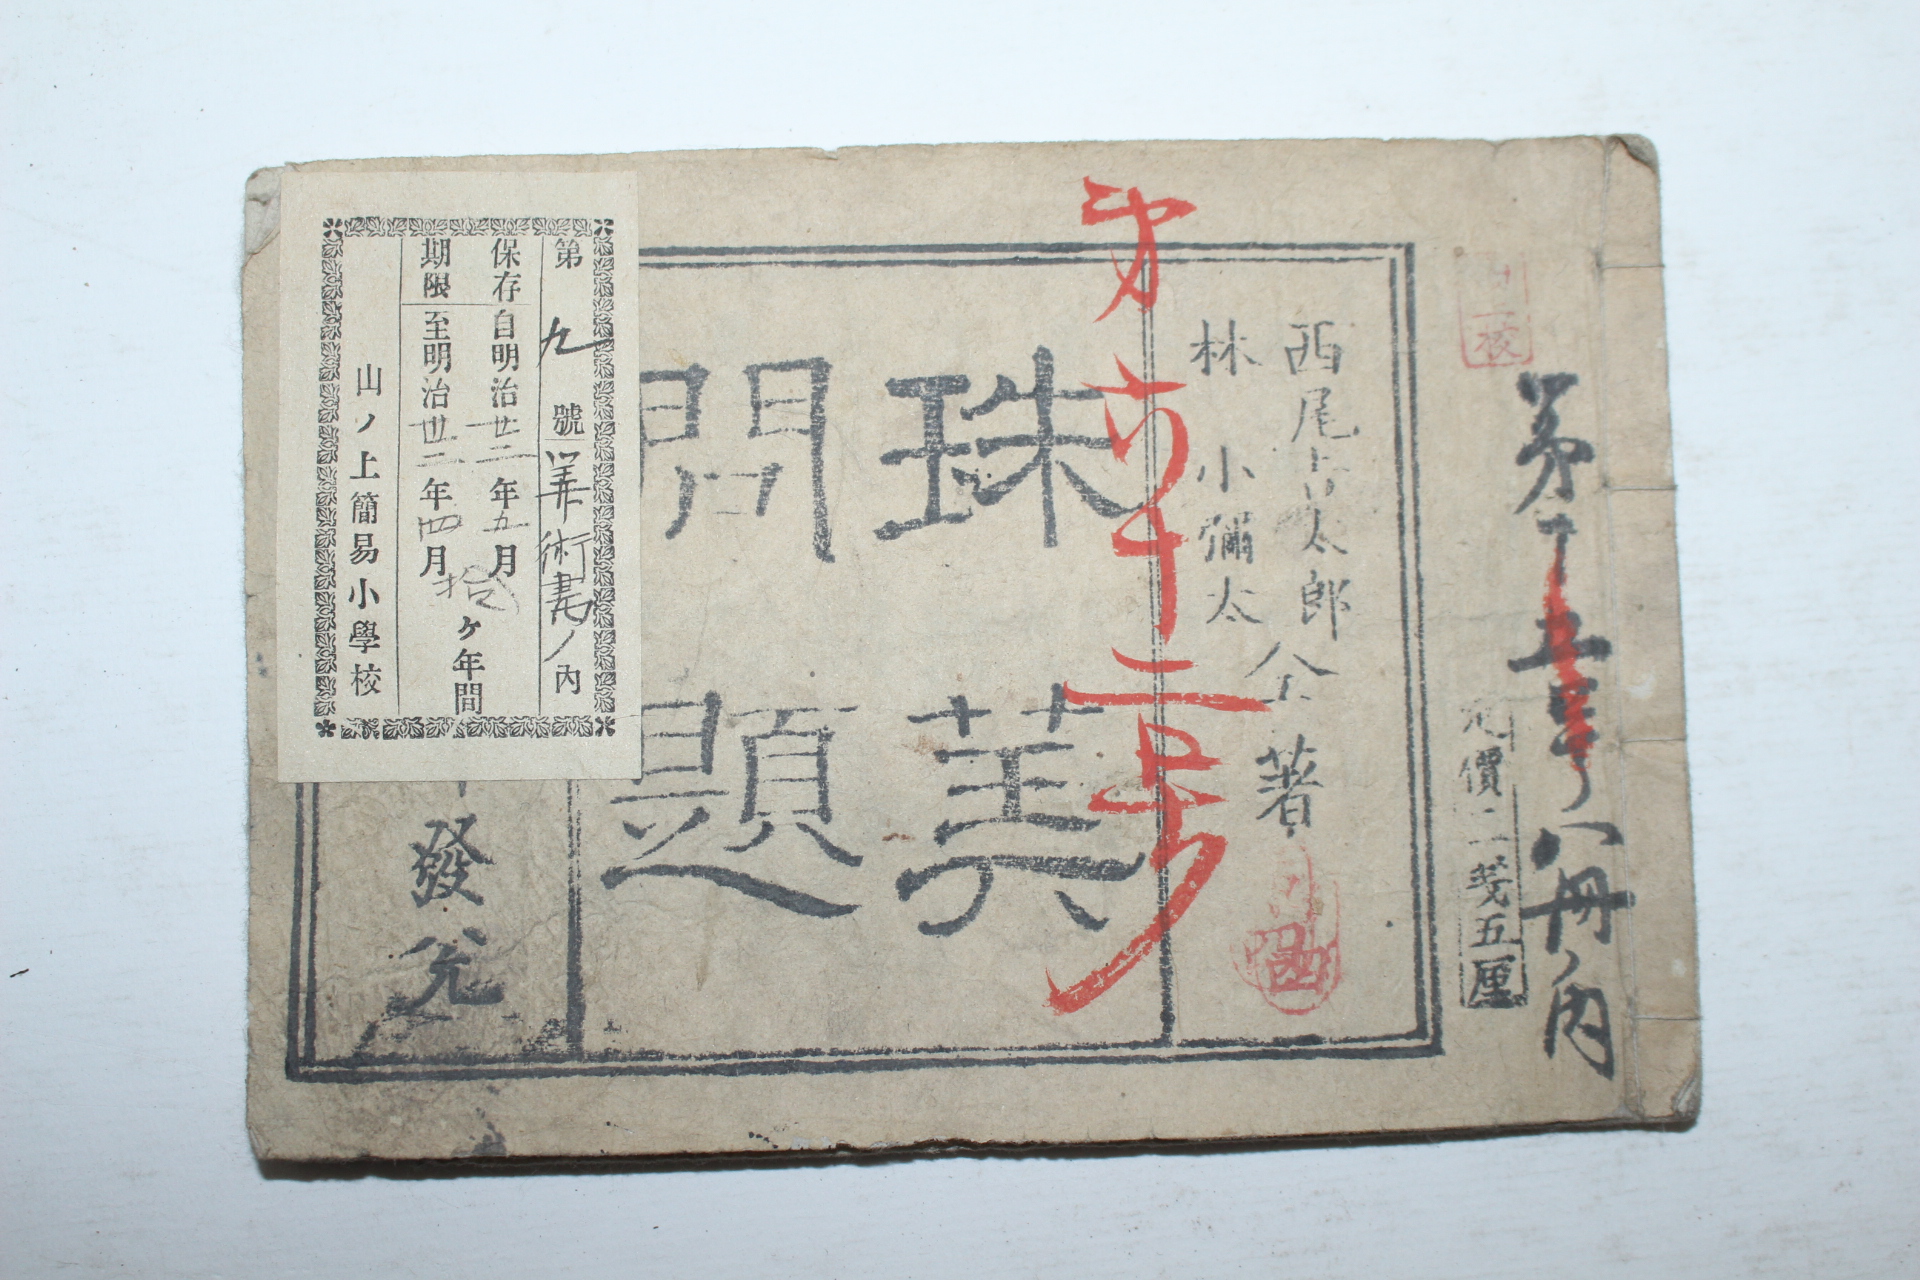 第十五号八冊ノ内
定價二錢五厘
西尾吉太郎
林小彌太
仝著
第六十二号
珠筭
問題
發兌
第九號筭術書ノ内
保存期限
自明治廿二年九月
至明治卅二年四月
拾ヶ年間
山ノ上簡易小學校